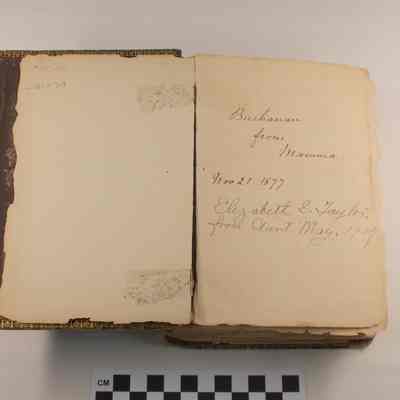 Buchanan
from
Mamma
Nov 21 1877
Elizabeth S. Taylor,
from Aunt May,
CM